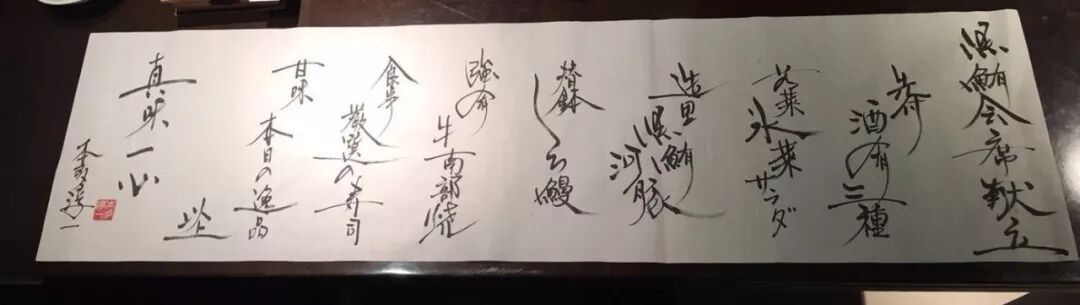 黒鮪会席献立
先付
酒肴三種
氷菜サラダ
造里
黒鮪
河豚
替鉢
鰻
強肴
牛南部焼
食事
厳選の寿司
甘味
本日の逸品
以上
真味一心